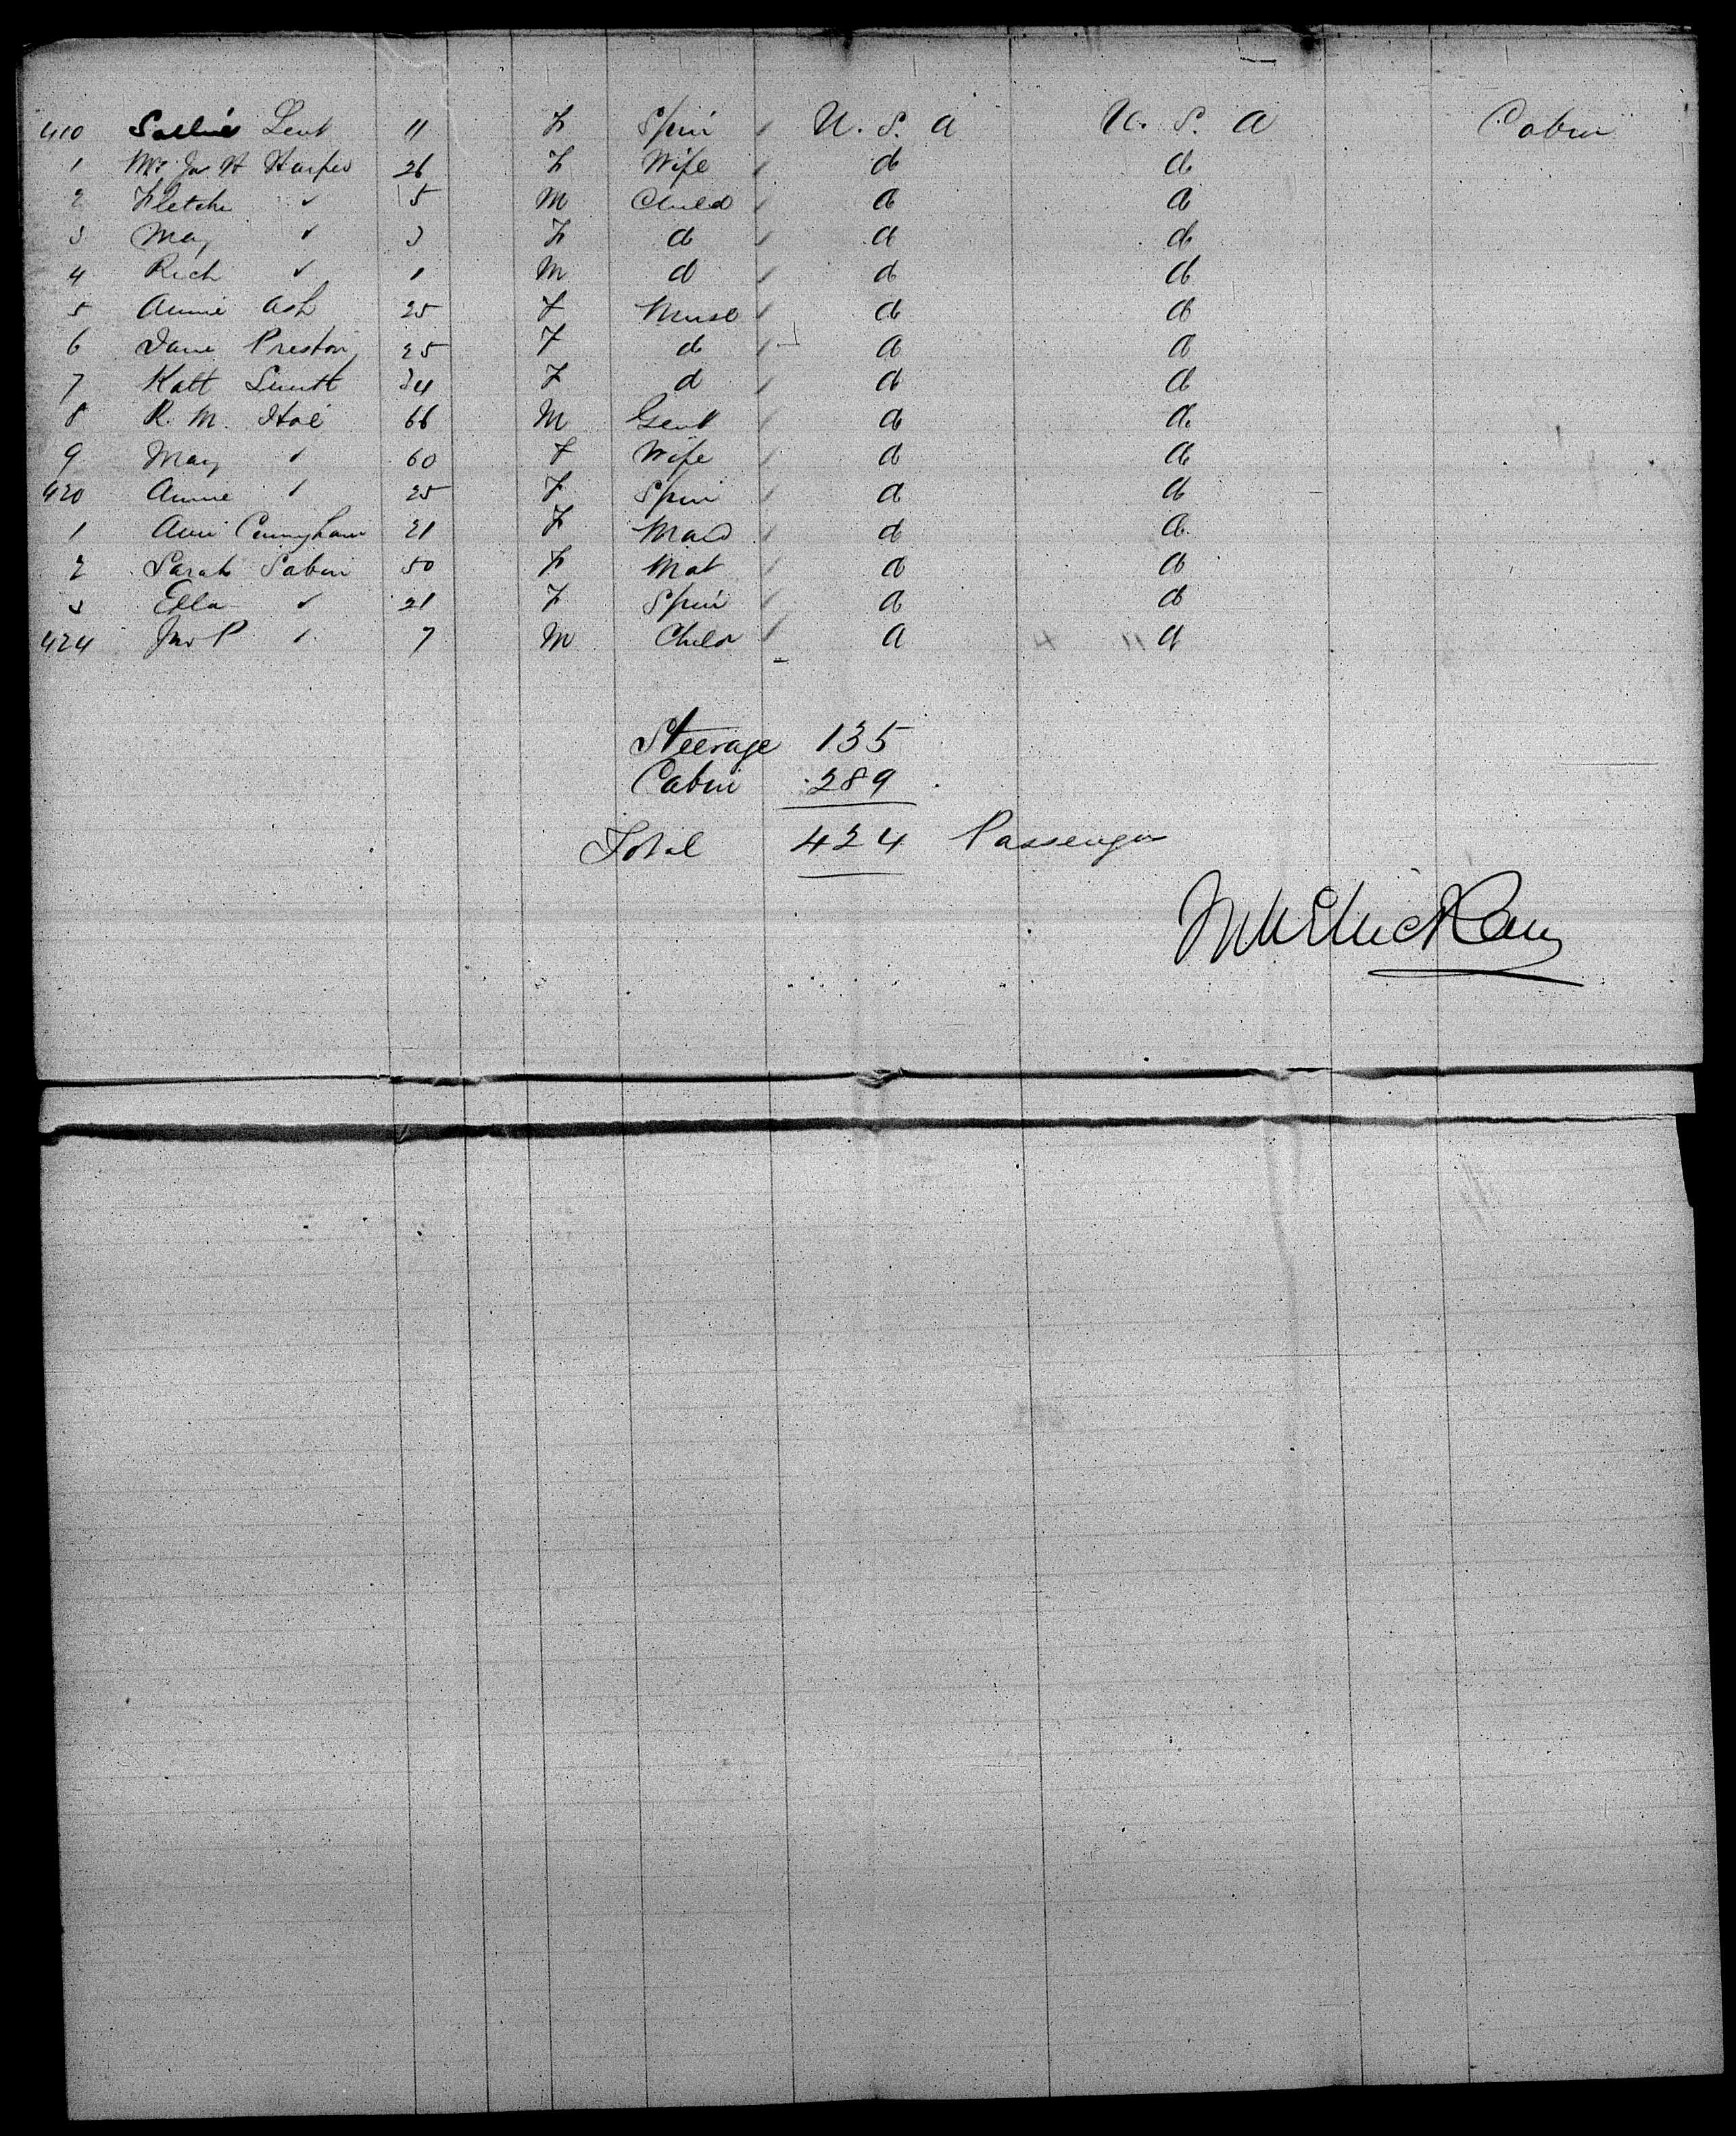 410 Sallie Lent 11 F Spin U. S. A U. S. A Cabin
1 Mrs Jno H Harper 26 F Wife do do
2 Fletche " 5 M Child do do
3 May " 3 F do do do
4 Rich " 1 M do do do
5 Annie Ash 25 F Nurse do do
6 Jane Preston 25 F do do do
7 Katt Smith 24 F do do do
8 R. M. Hoe 66 M Gent do do
9 Mary " 60 F Wife do do
420 Annie " 25 F Spin do do
1 Ann Cunningham 21 F Maid do do
2 Sarah Sabin 50 F Mat do do
3 Ella " 21 F Spin do do
424 Jno P " 7 M Child do do
Steerage 135
Cabin 289
Total 424 Passengers